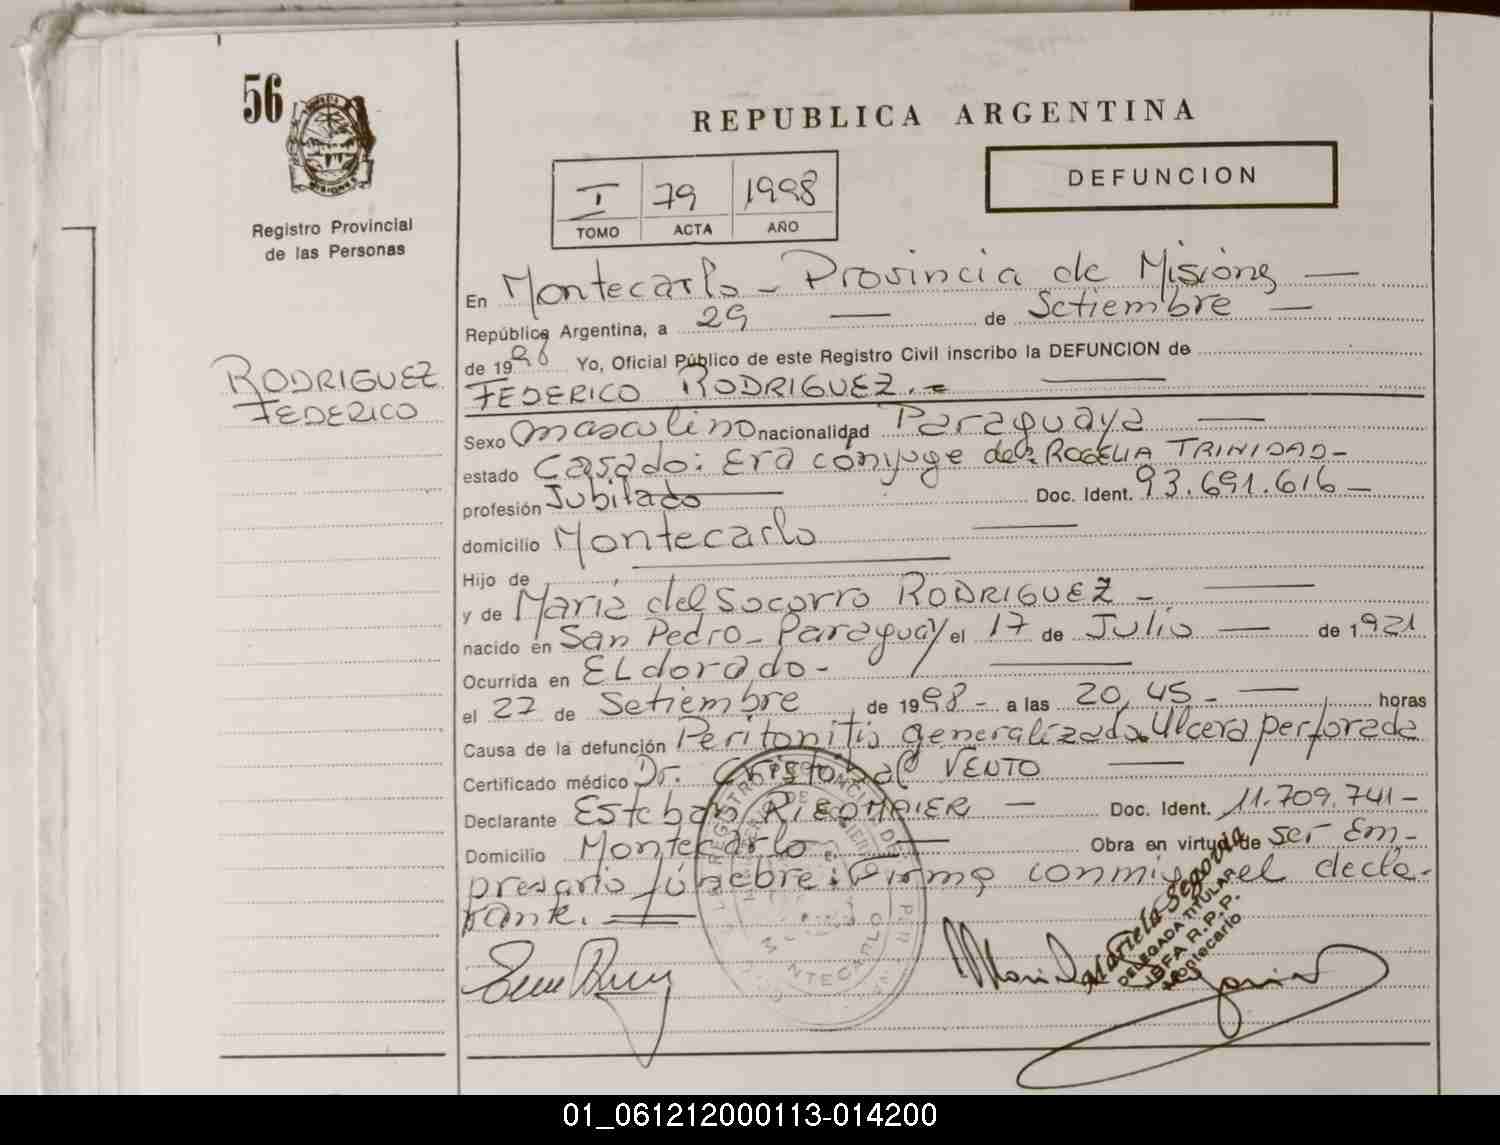 56
REPUBLICA ARGENTINA
DEFUNCION
I 79 1998
TOMO ACTA AÑO
MISIONES
Registro Provincial
de las Personas
RODRIGUEZ
FEDERICO
En Montecarlo - Provincia de Misiones
República Argentina, a 29 de Setiembre
de 1998 Yo, Oficial Público de este Registro Civil inscribo la DEFUNCION de
FEDERICO RODRIGUEZ.
Sexo masculino nacionalidad Paraguaya
estado Casado: Era conyuge de: ROGELIA TRINIDAD-
profesión Jubilado Doc. Ident. 93.691.616-
domicilio Montecarlo
Hijo de
y de María del Socorro RODRIGUEZ -
nacido en San Pedro - Paraguay el 17 de Julio de 1921
Ocurrida en ELdorado-
el 27 de Setiembre de 1998- a las 20,45- horas
Causa de la defunción Peritonitis generalizada. Ulcera perforada
Certificado médico Dr. Cristobal VENTO
Declarante Esteban Doc. Ident. 11.709.741-
Domicilio Montecarlo Obra en virtud de ser Em-
presario fúnebre: Firma conmigo el decla-
rante.
MONTECARLO
Mariela Segovia
DELEGADA TITULAR
R.P.P.
Montecarlo
01_061212000113-014200